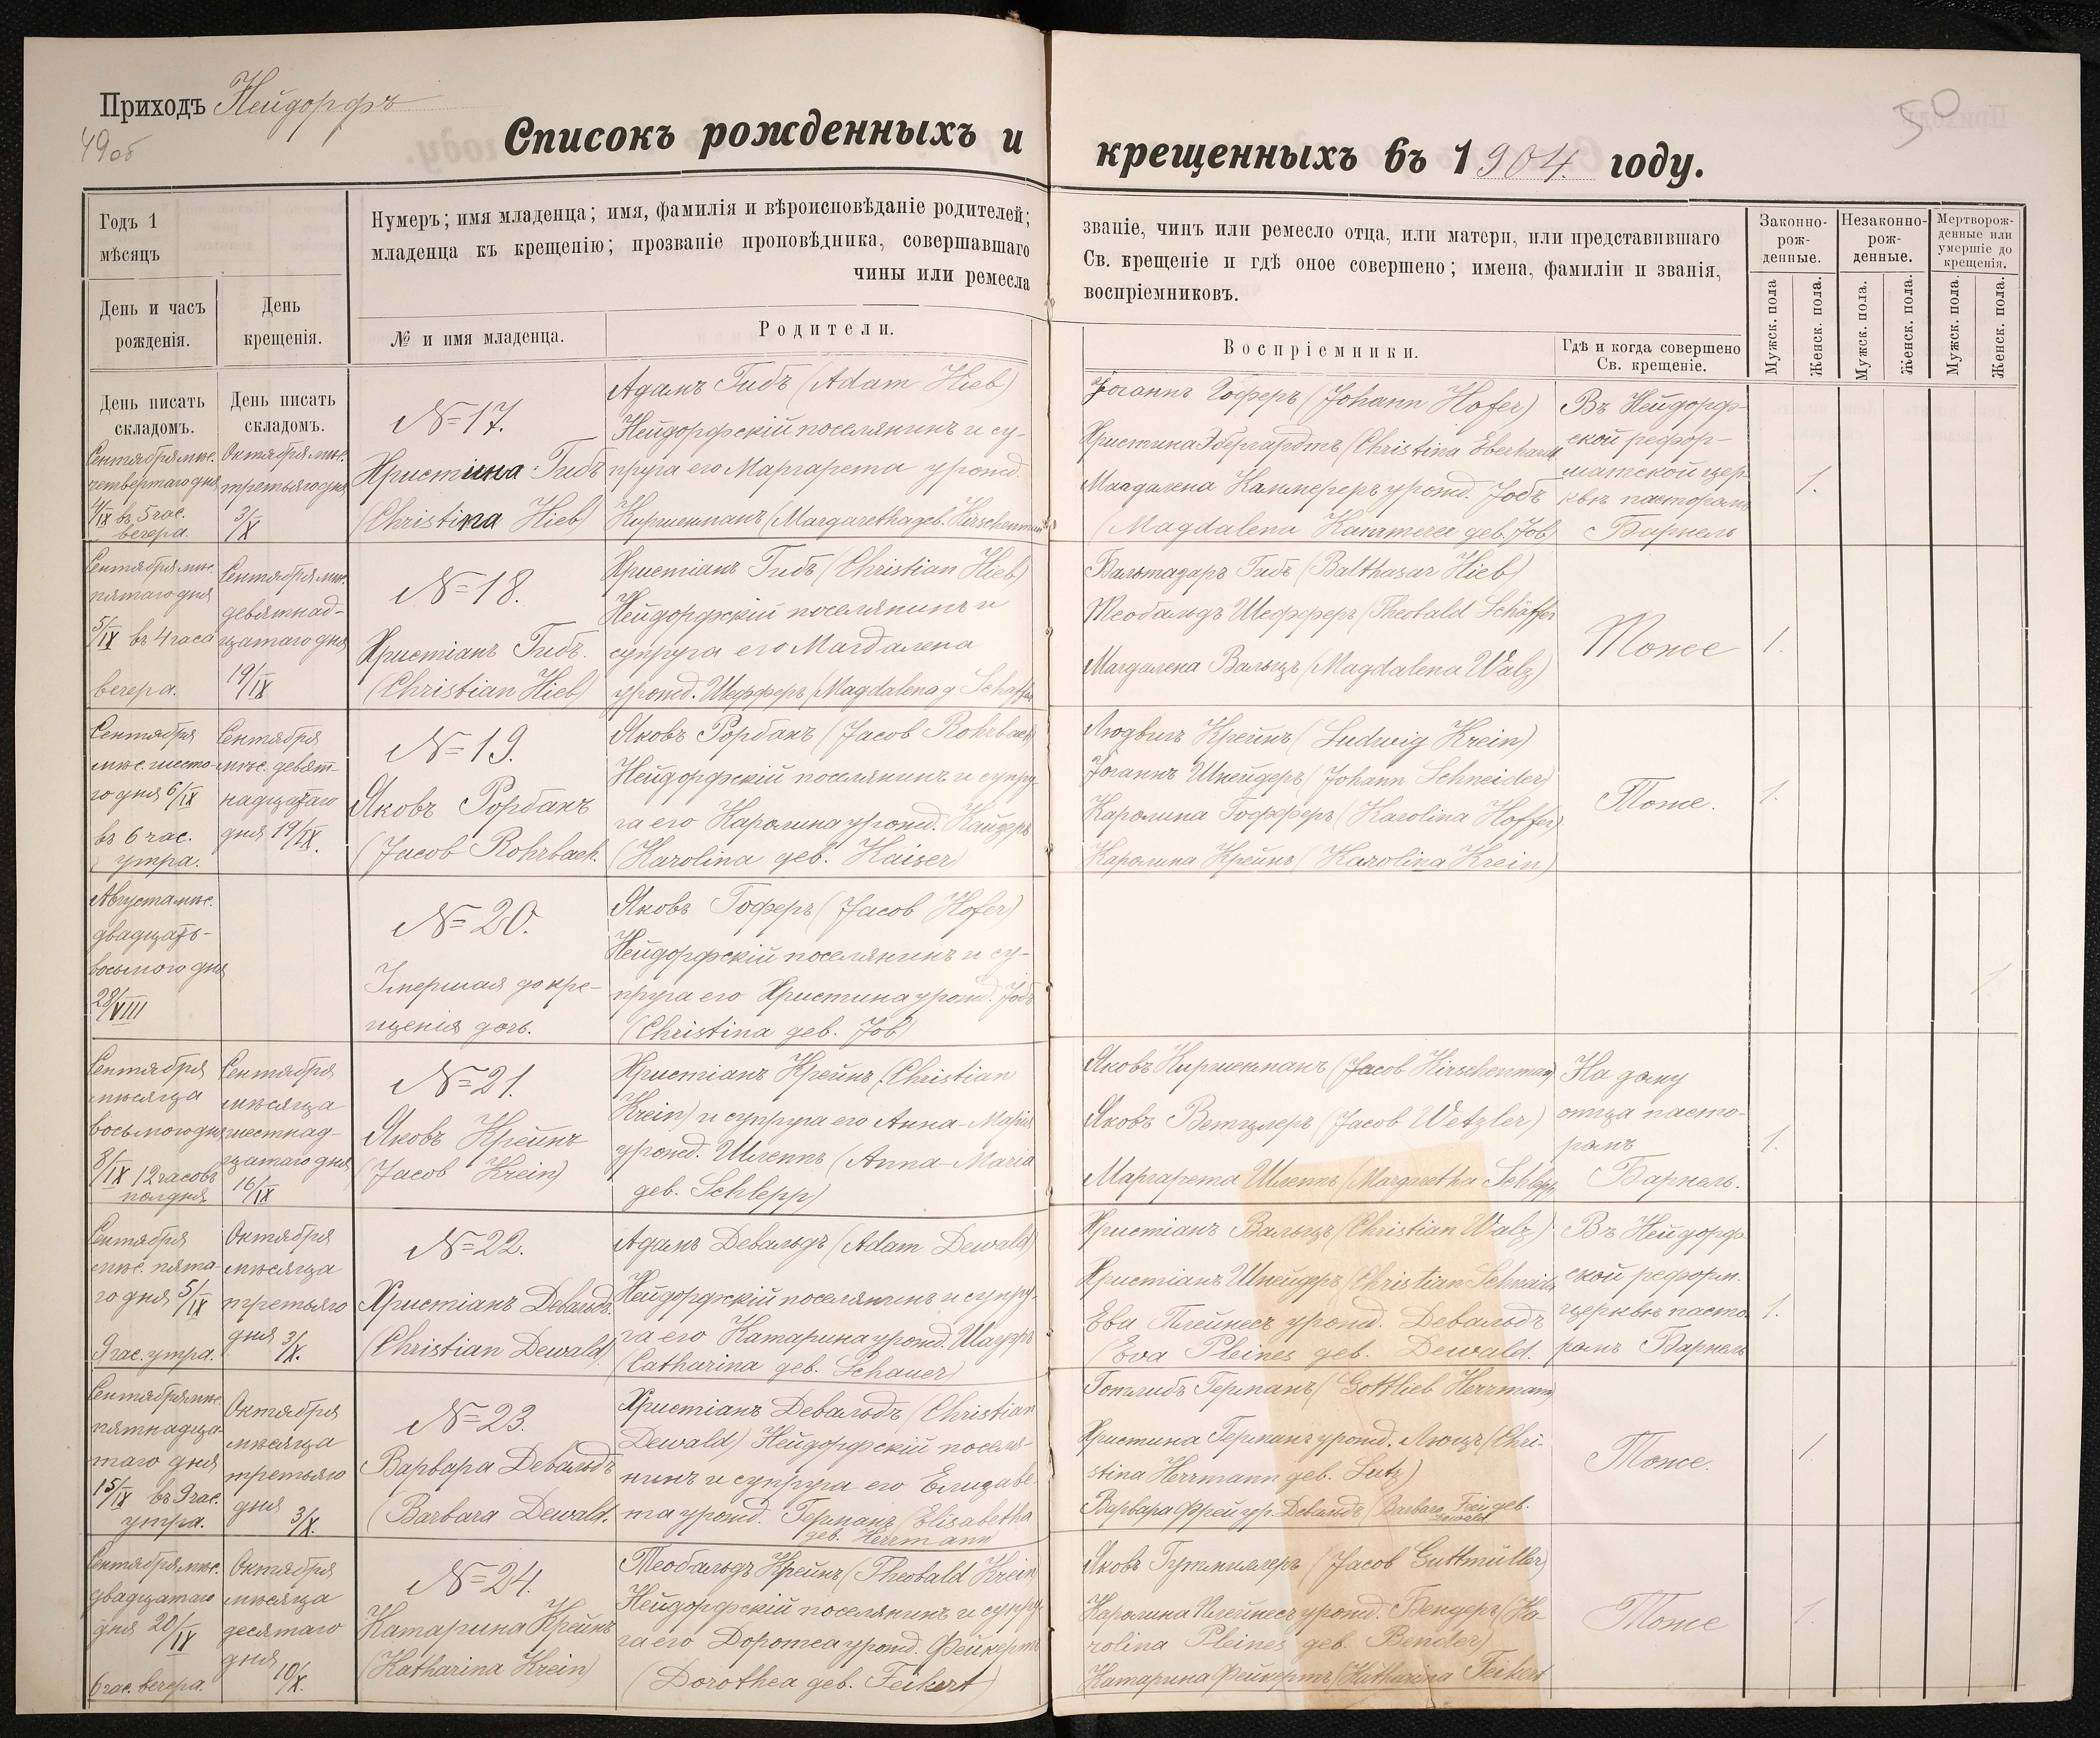 Приходъ Нейдорфъ
49об
50
Списокъ рожденныхъ и крещенныхъ въ 1904. году.
Годъ 1
мѣсяцъ
День и часъ
рожденія.
День
крещенія.
Нумеръ; имя младенца; имя, фамилія и вѣроисповѣданіе родителей;
младенца къ крещенію; прозваніе проповѣдника, совершавшаго
чины или ремесла
№ и имя младенца.
Родители.
званіе, чинъ или ремесло отца, или матери, или представившаго
Св. крещеніе и гдѣ оное совершено; имена, фамиліи и званія,
воспріемниковъ.
Воспріемники.
Гдѣ и когда совершено
Св. крещеніе.
Законно-
рож-
денные.
Незаконно-
рож-
денные.
Мертворож-
денные или
умершіе до
крещенія.
Мужск. пола
Женск. пола.
Мужск. пола.
Женск. пола.
Мужск. пола.
Женск. пола.
День писать
складомъ.
День писать
складомъ.
Сентября мѣс.
четвертаго дня
4/IX въ 5 час.
вечера.
Октября мѣс.
третьяго дня
3/X
№ 17.
Христина Гибъ
(Christina Hieb)
Адамъ Гибъ (Adam Hieb)
Нейдорфскій поселянинъ и су-
пруга его Маргарета урожд.
Киршенманъ (Margaretha geb. Kirschenmann)
Іоганнъ Гоферъ (Johann Hofer)
Христина Эбергардтъ (Christina Eberhardt
Магдалена Каммереръ урожд. Іобъ
(Magdalena Kammerer geb. Job)
Въ Нейдорф-
ской рефор-
матской цер-
квѣ пасторомъ
Барнель
1.
Сентября мѣс.
пятаго дня
5/IX въ 4 часа
вечера.
Сентября мѣс.
девятнад-
цатаго дня
19/IX
№ 18.
Христіанъ Гибъ.
(Christian Hieb)
Христіанъ Гибъ (Christian Hieb)
Нейдорфскій поселянинъ и
супруга его Магдалена
урожд. Шефферъ (Magdalena g. Schäffer
Бальтазаръ Гибъ (Balthasar Hieb)
Теобальдъ Шефферъ (Theobald Schäffer
Магдалена Вальцъ (Magdalena Walz)
Тоже
1.
Сентября
мѣс. шесто-
го дня 6/IX
въ 6 час.
утра.
Сентября
мѣс. девят-
надцатаго
дня 19/IX.
№ 19.
Яковъ Рорбахъ
(Jacob Rohrbach.
Яковъ Рорбахъ (Jacob Rohrbach)
Нейдорфскій поселянинъ и супру-
га его Каролина урожд. Кайзеръ
(Karolina geb. Kaiser)
Людвигъ Крейнъ (Ludwig Krein)
Іоганнъ Шнейдеръ (Johann Schneider)
Каролина Гофферъ (Karolina Hoffer)
Каролина Крейнъ (Karolina Krein)
Тоже.
1.
Августа мѣс.
двадцать-
восьмого дня
28/VIII
№ 20.
Умершая до кре-
щенія дочь.
Яковъ Гоферъ (Jacob Hofer)
Нейдорфскій поселянинъ и су-
пруга его Христина урожд. Іобъ
(Christina geb. Job)
1
Сентября
мѣсяца
восьмого дня
8/IX 12 часовъ
полдня.
Сентября
мѣсяца
шестнад-
цатаго дня
16/IX
№ 21.
Яковъ Крейнъ
(Jacob Krein)
Христіанъ Крейнъ (Christian
Krein) и супруга его Анна-Марія
урожд. Шлеппъ (Anna-Maria
geb. Schlepp)
Яковъ Киршенманъ (Jacob Kirschenman)
Яковъ Ветцлеръ (Jacob Wetzler)
Маргарета Шлеппъ (Margaretha Schlepp
На дому
отца пасто-
ромъ
Барнель.
1.
Сентября
мѣс. пята-
го дня 5/IX
9 час. утра.
Октября
мѣсяца
третьяго
дня 3/X.
№ 22.
Христіанъ Девальдъ.
(Christian Dewald)
Адамъ Девальдъ (Adam Dewald)
Нейдорфскій поселянинъ и супру-
га его Катарина урожд. Шауэръ
(Catharina geb. Schauer)
Христіанъ Вальцъ (Christian Walz)
Христіанъ Шнейдръ (Christian Schneider
Ева Плейнесъ урожд. Девальдъ
(Eva Pleines geb. Dewald.
Въ Нейдорф-
ской реформ.
церквѣ пасто-
ромъ Барнель
1.
Сентября мѣс.
пятнадца-
таго дня
15/IX въ 9 час.
утра.
Октября
мѣсяца
третьяго
дня 3/X.
№ 23.
Варвара Девальдъ
(Barbara Dewald.
Христіанъ Девальдъ (Christian
Dewald) Нейдорфскій поселя-
нинъ и супруга его Елизаве-
та урожд. Германъ (Elisabetha
geb. Herrmann
Готлибъ Германъ (Gottlieb Herrmann)
Христина Германъ урожд. Люцъ (Chri-
stina Herrmann geb. Lutz)
Варвара Фрей ур. Девальдъ (Barbara Frei geb.
Dewald
Тоже.
1.
Сентября мѣс.
двадцатаго
дня 20/IX
6 час. вечера.
Октября
мѣсяца
десятаго
дня 10/X.
№ 24.
Катарина Крейнъ
(Katharina Krein)
Теобальдъ Крейнъ (Theobald Krein
Нейдорфскій поселянинъ и супру-
га его Доротеа урожд. Фейкертъ
(Dorothea geb. Feikert)
Яковъ Гутмиллеръ (Jacob Guttmüller)
Каролина Плейнесъ урожд. Бендеръ (Ka-
rolina Pleines geb. Bender)
Катарина Фейкертъ (Katharina Feikert
Тоже
1.